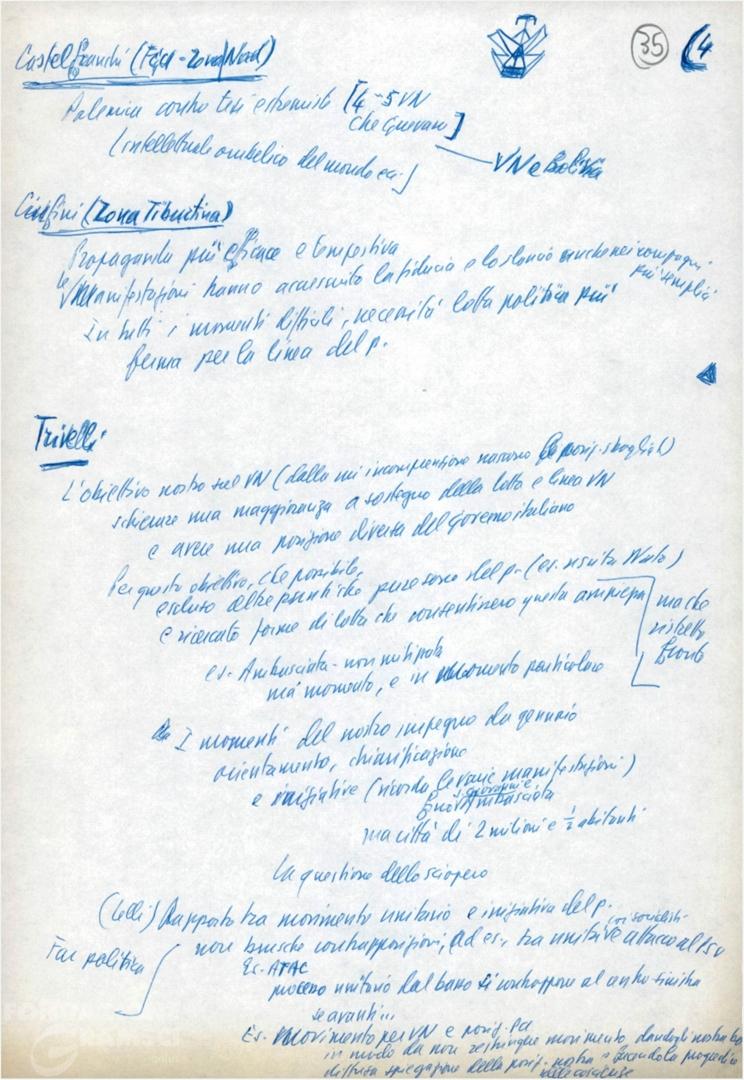 35 (4
Castelfranchi (Fgci - Zona Nord)
Polemica contro tesi estremiste [4-5 VN
Che Guevara]
(intellettuale ombelico del mondo ecc.)
VN e Bolivia
Cinfini (Zona Tiburtina)
Propaganda più efficace e tempestiva
le Manifestazioni hanno accresciuto la fiducia e lo slancio anche nei compagni
più semplici
In tutti i momenti difficili, necessità lotta politica più
ferma per la linea del p.
Trivelli
L'obiettivo nostro sul VN (dalla cui incomprensione nascono posiz. sbagliate)
schierare una maggioranza a sostegno della lotta e linea VN
e avere una posizione diversa del Governo italiano
Per questo obiettivo, che possibile,
escluso altri punti che pure sono del p. (es. uscita Nato)
e ricercato forme di lotta che consentissero questa ampiezza
ma che
ristretto
fronte
es. Ambasciata - non
ma momento, e in momento particolare
I momenti del nostro impegno da gennaio
orientamento, chiarificazione
e iniziative (ricorda le varie manifestazioni)
s. giovanni e
Ambasciata
ma città di 2 milioni e 1/2 abitanti
La questione dello sciopero
(Lelli) Rapporto tra movimento unitario e iniziativa del p.
con socialisti
non brusche contrapposizioni, ad es., tra unità e attacco al Psu
Far politica
Es. ATAC
processo unitario dal basso si contrappone al centro sinistra
se avanti...
Es. Movimento per VN e posiz. Pci
in modo da non restringere movimento, dandogli nostra
spiegazione della posiz. nostra